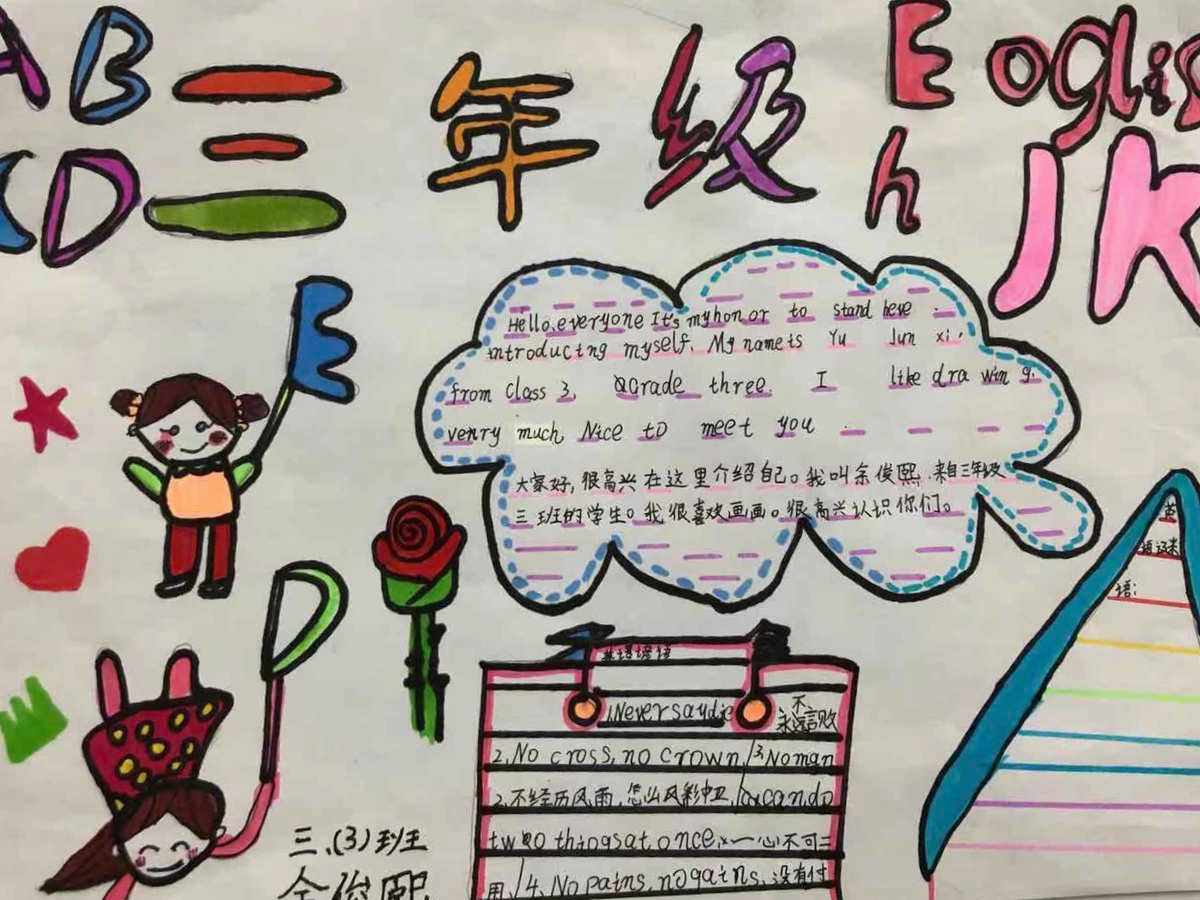 A B 三年级 E nglis
C D h JK
E
Hello, everyone It's my honor to stand here
introducing myself. My name is Yu Jun xi.
from Class 3, Grade three. I like drawing.
venry much, Nice to meet you
大家好,很高兴在这里介绍自己。我叫余俊熙.来自三年级
三班的学生。我很喜欢画画。很高兴认识你们。
D
语:
1.Never saydie 不
永远言败
2.No cross, no crown. 3.No man
2.不经历风雨,怎么见彩虹
can do
twoo things at once, 一心不可二
用. 4.No pains, no gains. 没有付
三.(3)班王
余俊熙